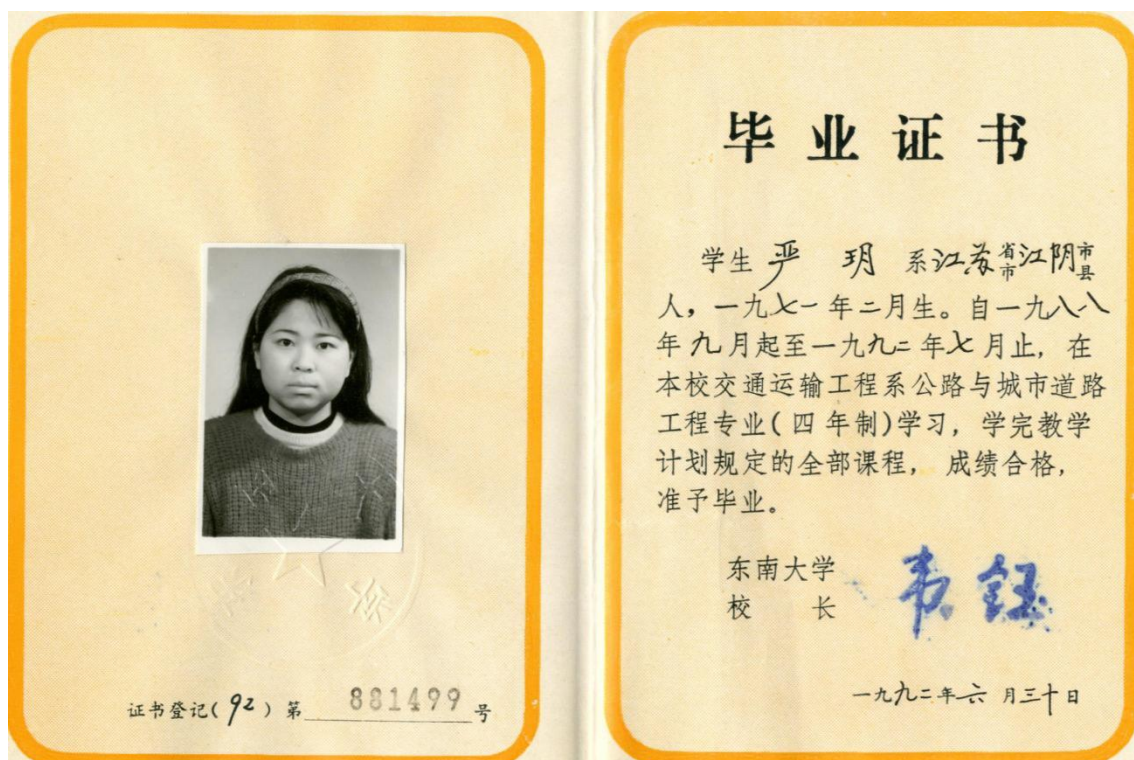 证书登记(92)第881499号
毕业证书
学生 严 玥 系江苏省市江阴市县
人，一九七一年二月生。自一九八八
年九月起至一九九二年七月止，在
本校交通运输工程系公路与城市道路
工程专业(四年制)学习，学完教学
计划规定的全部课程，成绩合格，
准予毕业。
东南大学
校 长 韦钰
一九九二年六月三十日